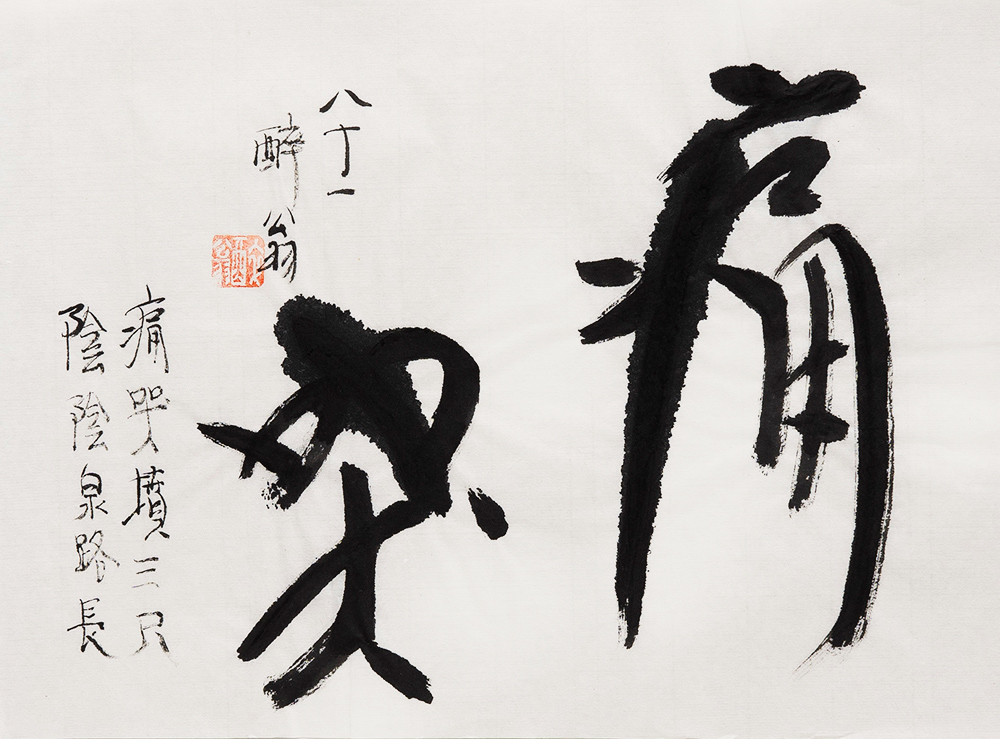 痛哭
八十一
酔翁
痛哭墳三尺
陰陰泉路長